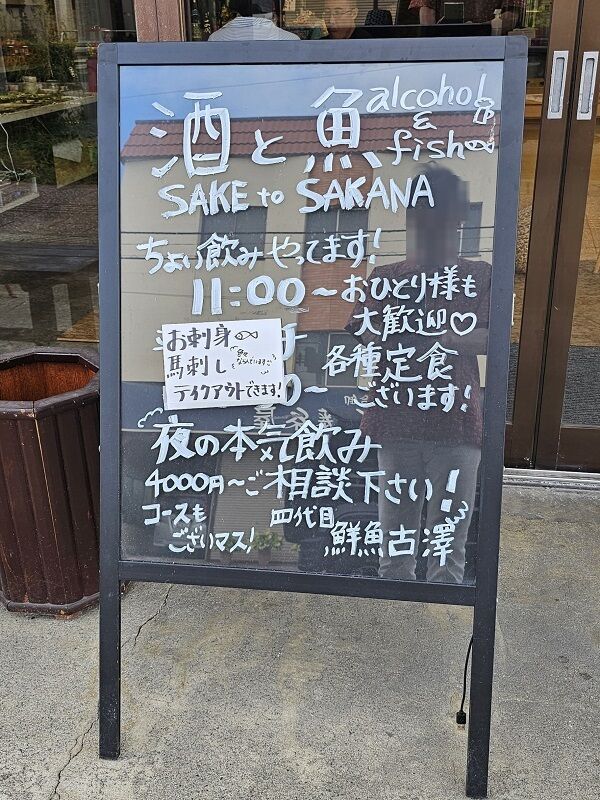 酒と魚 alcohol
& fish
SAKE to SAKANA
ちょい飲みやってます!
11:00〜おひとり様も
大歓迎♡
お刺身
馬刺し
テイクアウトできます!
各種定食
0〜ございます!
夜の本気飲み
4000円〜ご相談下さい!
コースも
ございマス!
四代目
鮮魚古澤